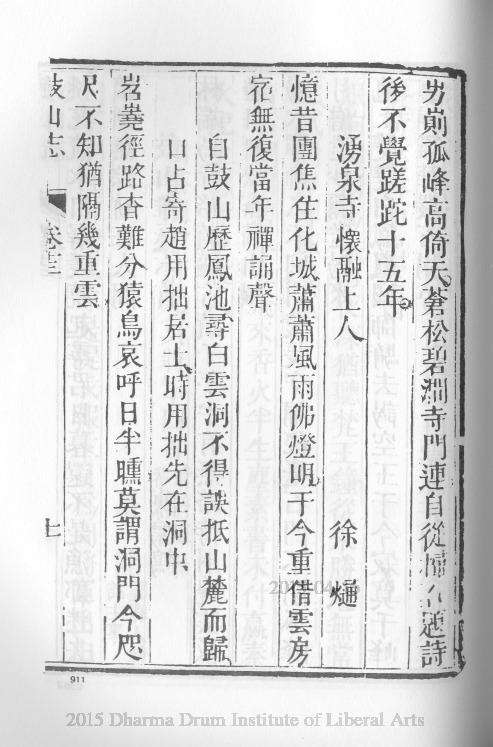 屴崱孤峰高倚天蒼松碧澗寺門連自從題詩
後不覺蹉跎十五年
湧泉寺懷融上人 徐𤊹
憶昔團焦住化城蕭蕭風雨佛燈明于今重借雲房
宿無復當年禪誦聲
自鼓山歷鳳池尋白雲洞不得誤抵山麓而歸
口占寄趙用拙居士時用拙先在洞中
岧嶤徑路杳難分猿鳥哀呼日半曛莫謂洞門今咫
尺不知猶隔幾重雲
鼓山志 卷十三 七
911
2015 Dharma Drum Institute of Liberal Arts